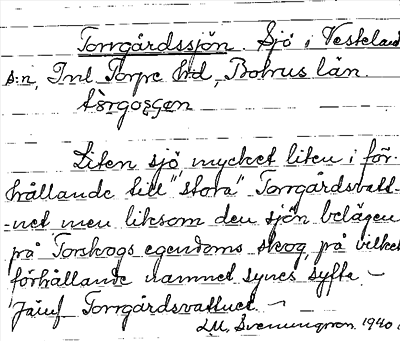 Torrgårdssjön. Sjö i Västerlanda
s:n, Inl. Torpe hd, Bohus län.
Liten sjö mycket liten i för-
hållande till "stora" Torrgårdsvatt-
net men liksom den sjön belägen
på Torskogs egendoms skog, på vilket
förhållande namnet synes syfta. -
Jämf Torrgårdsvattnet. -
1940